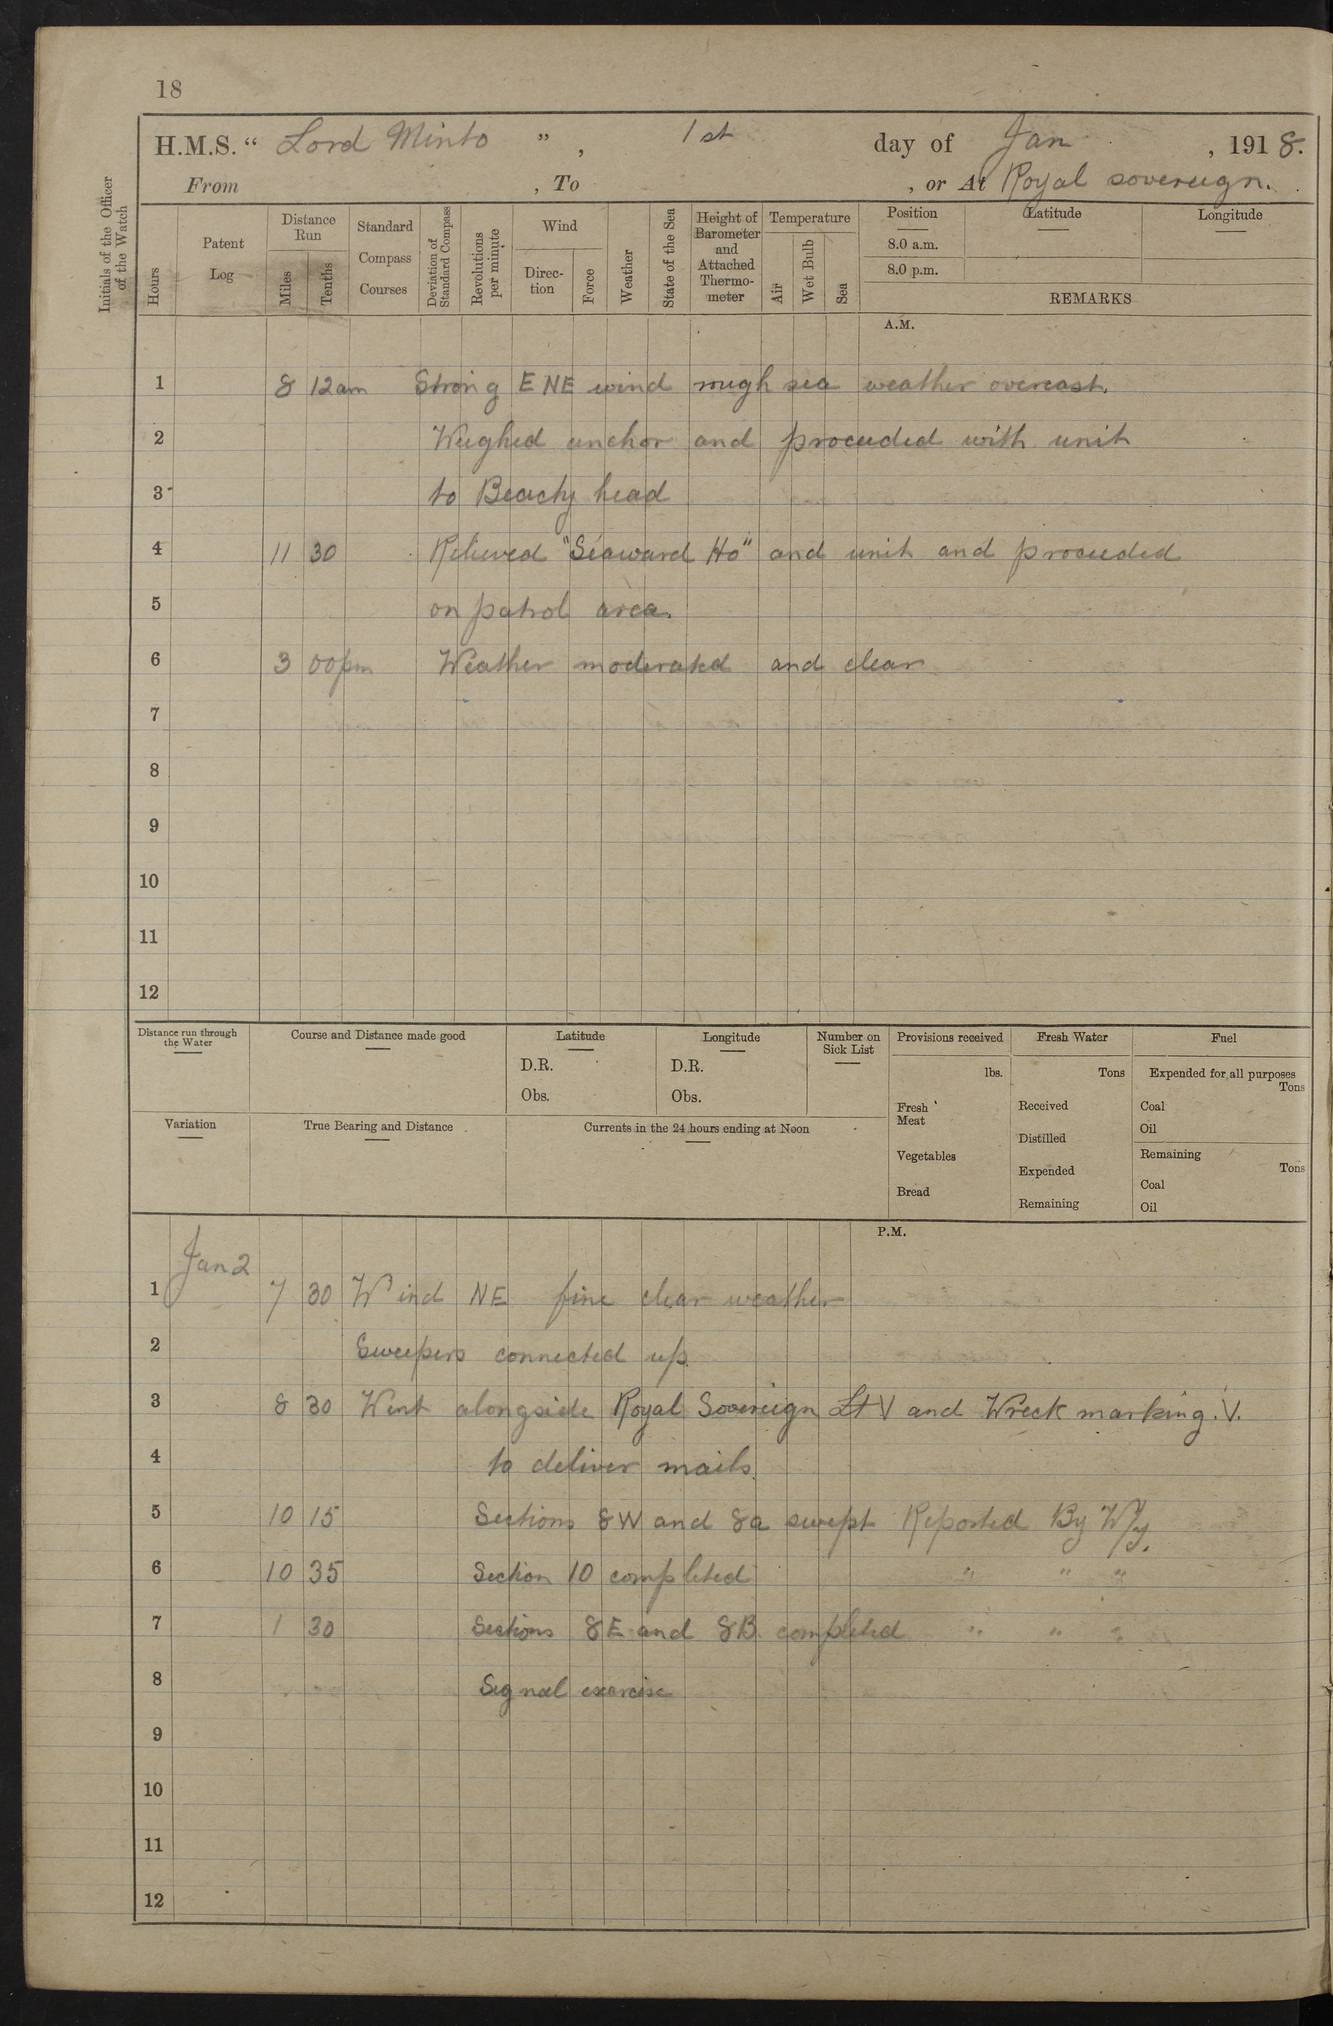 18
H.M.S. “ Lord Minto ” , 1st day of Jan , 1918.
From , To , or At Royal sovereign.
Initials of the Officer of the Watch
Hours
Patent Log
Distance Run
Miles
Tenths
Standard Compass Courses
Deviation of Standard Compass
Revolutions per minute
Wind
Direc-tion
Force
Weather
State of the Sea
Height of Barometer and Attached Thermo-meter
Temperature
Air
Wet Bulb
Sea
Position
8.0 a.m.
8.0 p.m.
Latitude
Longitude
REMARKS
A.M.
1 8 12am Strong ENE wind rough sea weather overcast.
2 Weighed anchor and proceeded with unit
3 to Beachy head
4 11 30 Relieved "Seaward Ho" and unit and proceeded
5 on patrol area.
6 3 00pm Weather moderated and clear
7
8
9
10
11
12
Distance run through the Water
Course and Distance made good
Latitude
D.R.
Obs.
Longitude
D.R.
Obs.
Number on Sick List
Provisions received
lbs.
Fresh Meat
Vegetables
Bread
Fresh Water
Tons
Received
Distilled
Expended
Remaining
Fuel
Expended for all purposes
Tons
Coal
Oil
Remaining
Tons
Coal
Oil
Variation
True Bearing and Distance
Currents in the 24 hours ending at Noon
P.M.
Jan 2
1 7 30 Wind NE fine clear weather
2 Sweepers connected up.
3 8 30 Went alongside Royal Sovereign Lt V and Wreck marking. V.
4 to deliver mails.
5 10 15 Sections 8W and 8a swept Reported By W/y.
6 10 35 Section 10 completed " " "
7 1 30 Sections 8E and 8B completed " " "
8 Signal exercise
9
10
11
12